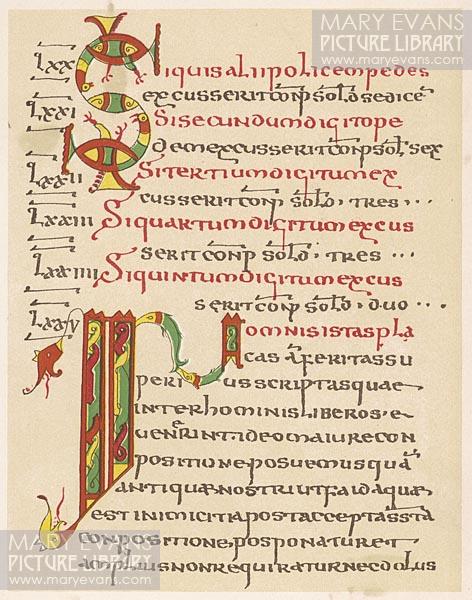 MARY EVANS
PICTURE LIBRARY
www.maryevans.com
LXX Siquis aliipolicempedes
excusserit conp̄ sold̄ sedicē
LXXI Sisecundumdigitope
demexcusserit conp̄ sold̄ sex
LXXII Sitertiumdigitumex
cusserit conp̄ sold̄ · tres ···
LXXIII Siquartumdigitumexcus
serit conp̄ sold̄ · tres ···
LXXIIII Siquintumdigitumexcus
serit conp̄ sold̄ · duo ···
LXXV Inomnisistaspla
cas aferitassu
periusscriptasquae
interhominisliberos·e
uenerint·ideomaiurecon
positioneposuemusquā
antiquaenostriutfaidaquae
estinimicitiapostacceptasstā
conpositioneposponaturet
ampliusnonrequiraturnecdolus
MARY EVANS
PICTURE LIBRARY
www.maryevans.com